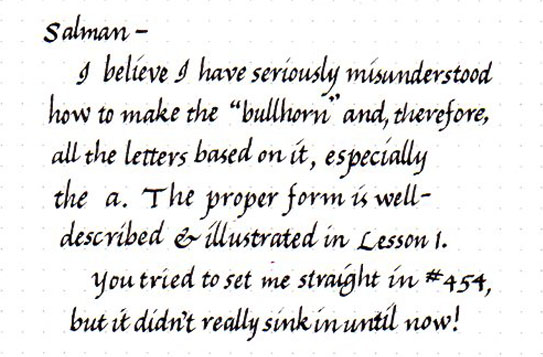 Salman –
I believe I have seriously misunderstood
how to make the "bullhorn" and, therefore,
all the letters based on it, especially
the a. The proper form is well-
described & illustrated in Lesson 1.
You tried to set me straight in #454,
but it didn't really sink in until now!